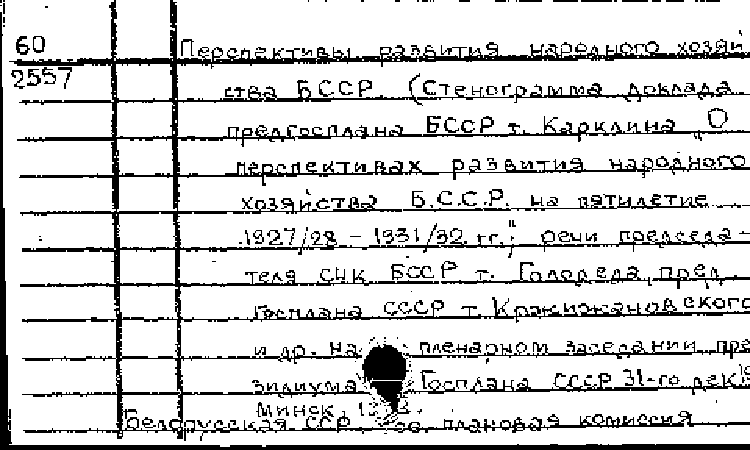 60
2557
Перспективы развития народного хозяй
ства БССР. (Стенограмма доклада
предгосплана БССР т. Карклина „О
перспективах развития народного
хозяйства Б.С.С.Р. на пятилетие
1927/28 - 1931/32 гг."; речи председа-
теля СНК БССР т. Голодеда, пред.
Госплана СССР т. Кржижановского
и др. на пленарном заседании пре
зидиума Госплана СССР 31-го дек
Минск,
Белорусская ССР. плановая комиссия